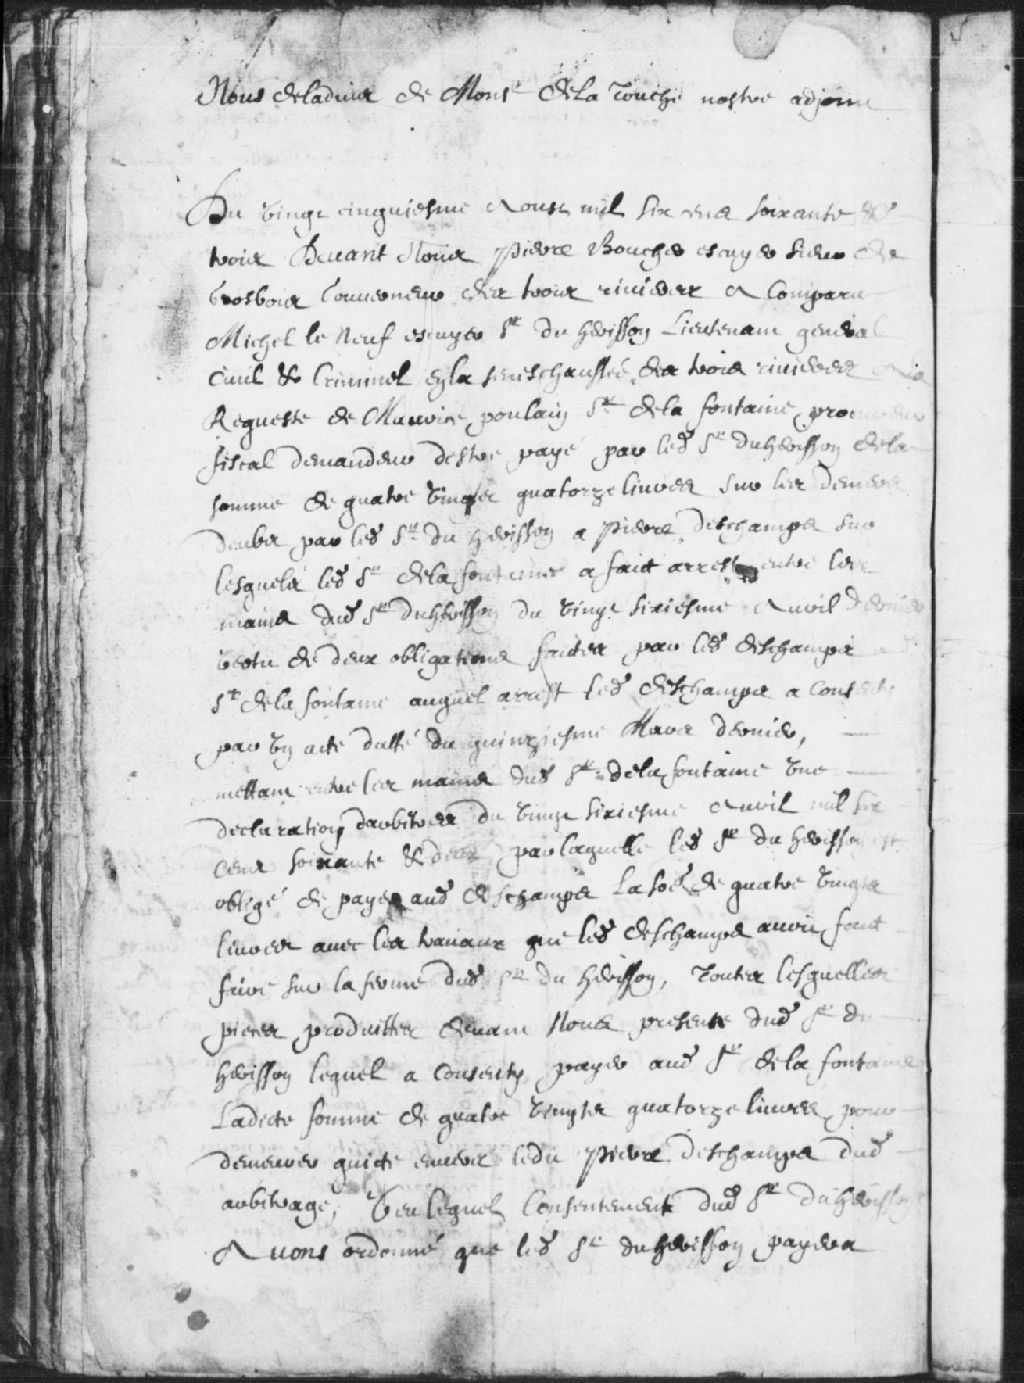 Nous deladvis de Monsr dela Touche nostre adjoin
Du vingt cinquiesme Aoust mil six cens soixante &
trois Devant Nous pierre Boucher escuyer sieur de
Grosbois Gouverneur des trois rivieres A Comparu
Michel le Neuf escuyer Sr du herisson Lieutenant general
Civil & Criminel en la seneschaussée des trois rivieres A la
Requeste de Maurice poulain Sr de la fontaine procureur
fiscal demandeur destre payé par led Sr du herisson de la
somme de quatre vingts quatorze livres sur les deniers
deubs par led Sr du herisson a pierre deschamps sur
lesquels led Sr dela fontaine a fait arrest entre les
mains dud Sr du herisson du vingt sixiesme Avril dernier
vertu de deux obligations faites par led deschamps
Sr dela fontaine auquel arrest led deschamps a consenti
par un acte datté du quinziesme Mars dernier,
mettant entre les mains dud Sr dela fontaine une
declaration darbitres du vingt sixiesme Avril mil six
cens soixante & deux par laquelle led Sr du herisson est
obligé de payer aud deschamps la soe de quatre vingts
livres avec les travaux que led deschamps avoit fait
faire sur la ferme dud Sr du herisson, Toutes lesquelles
pieces produittes devant Nous presence dud Sr du
herisson lequel a consenty payer aud Sr de la fontaine
Ladicte somme de quatre vingts quatorze livres pour
demeurer quicte envers ledit pierre deschamps dud
arbitrage, Veu lequel Consentement dud Sr du herisson
Avons ordonné que led Sr du herisson payera